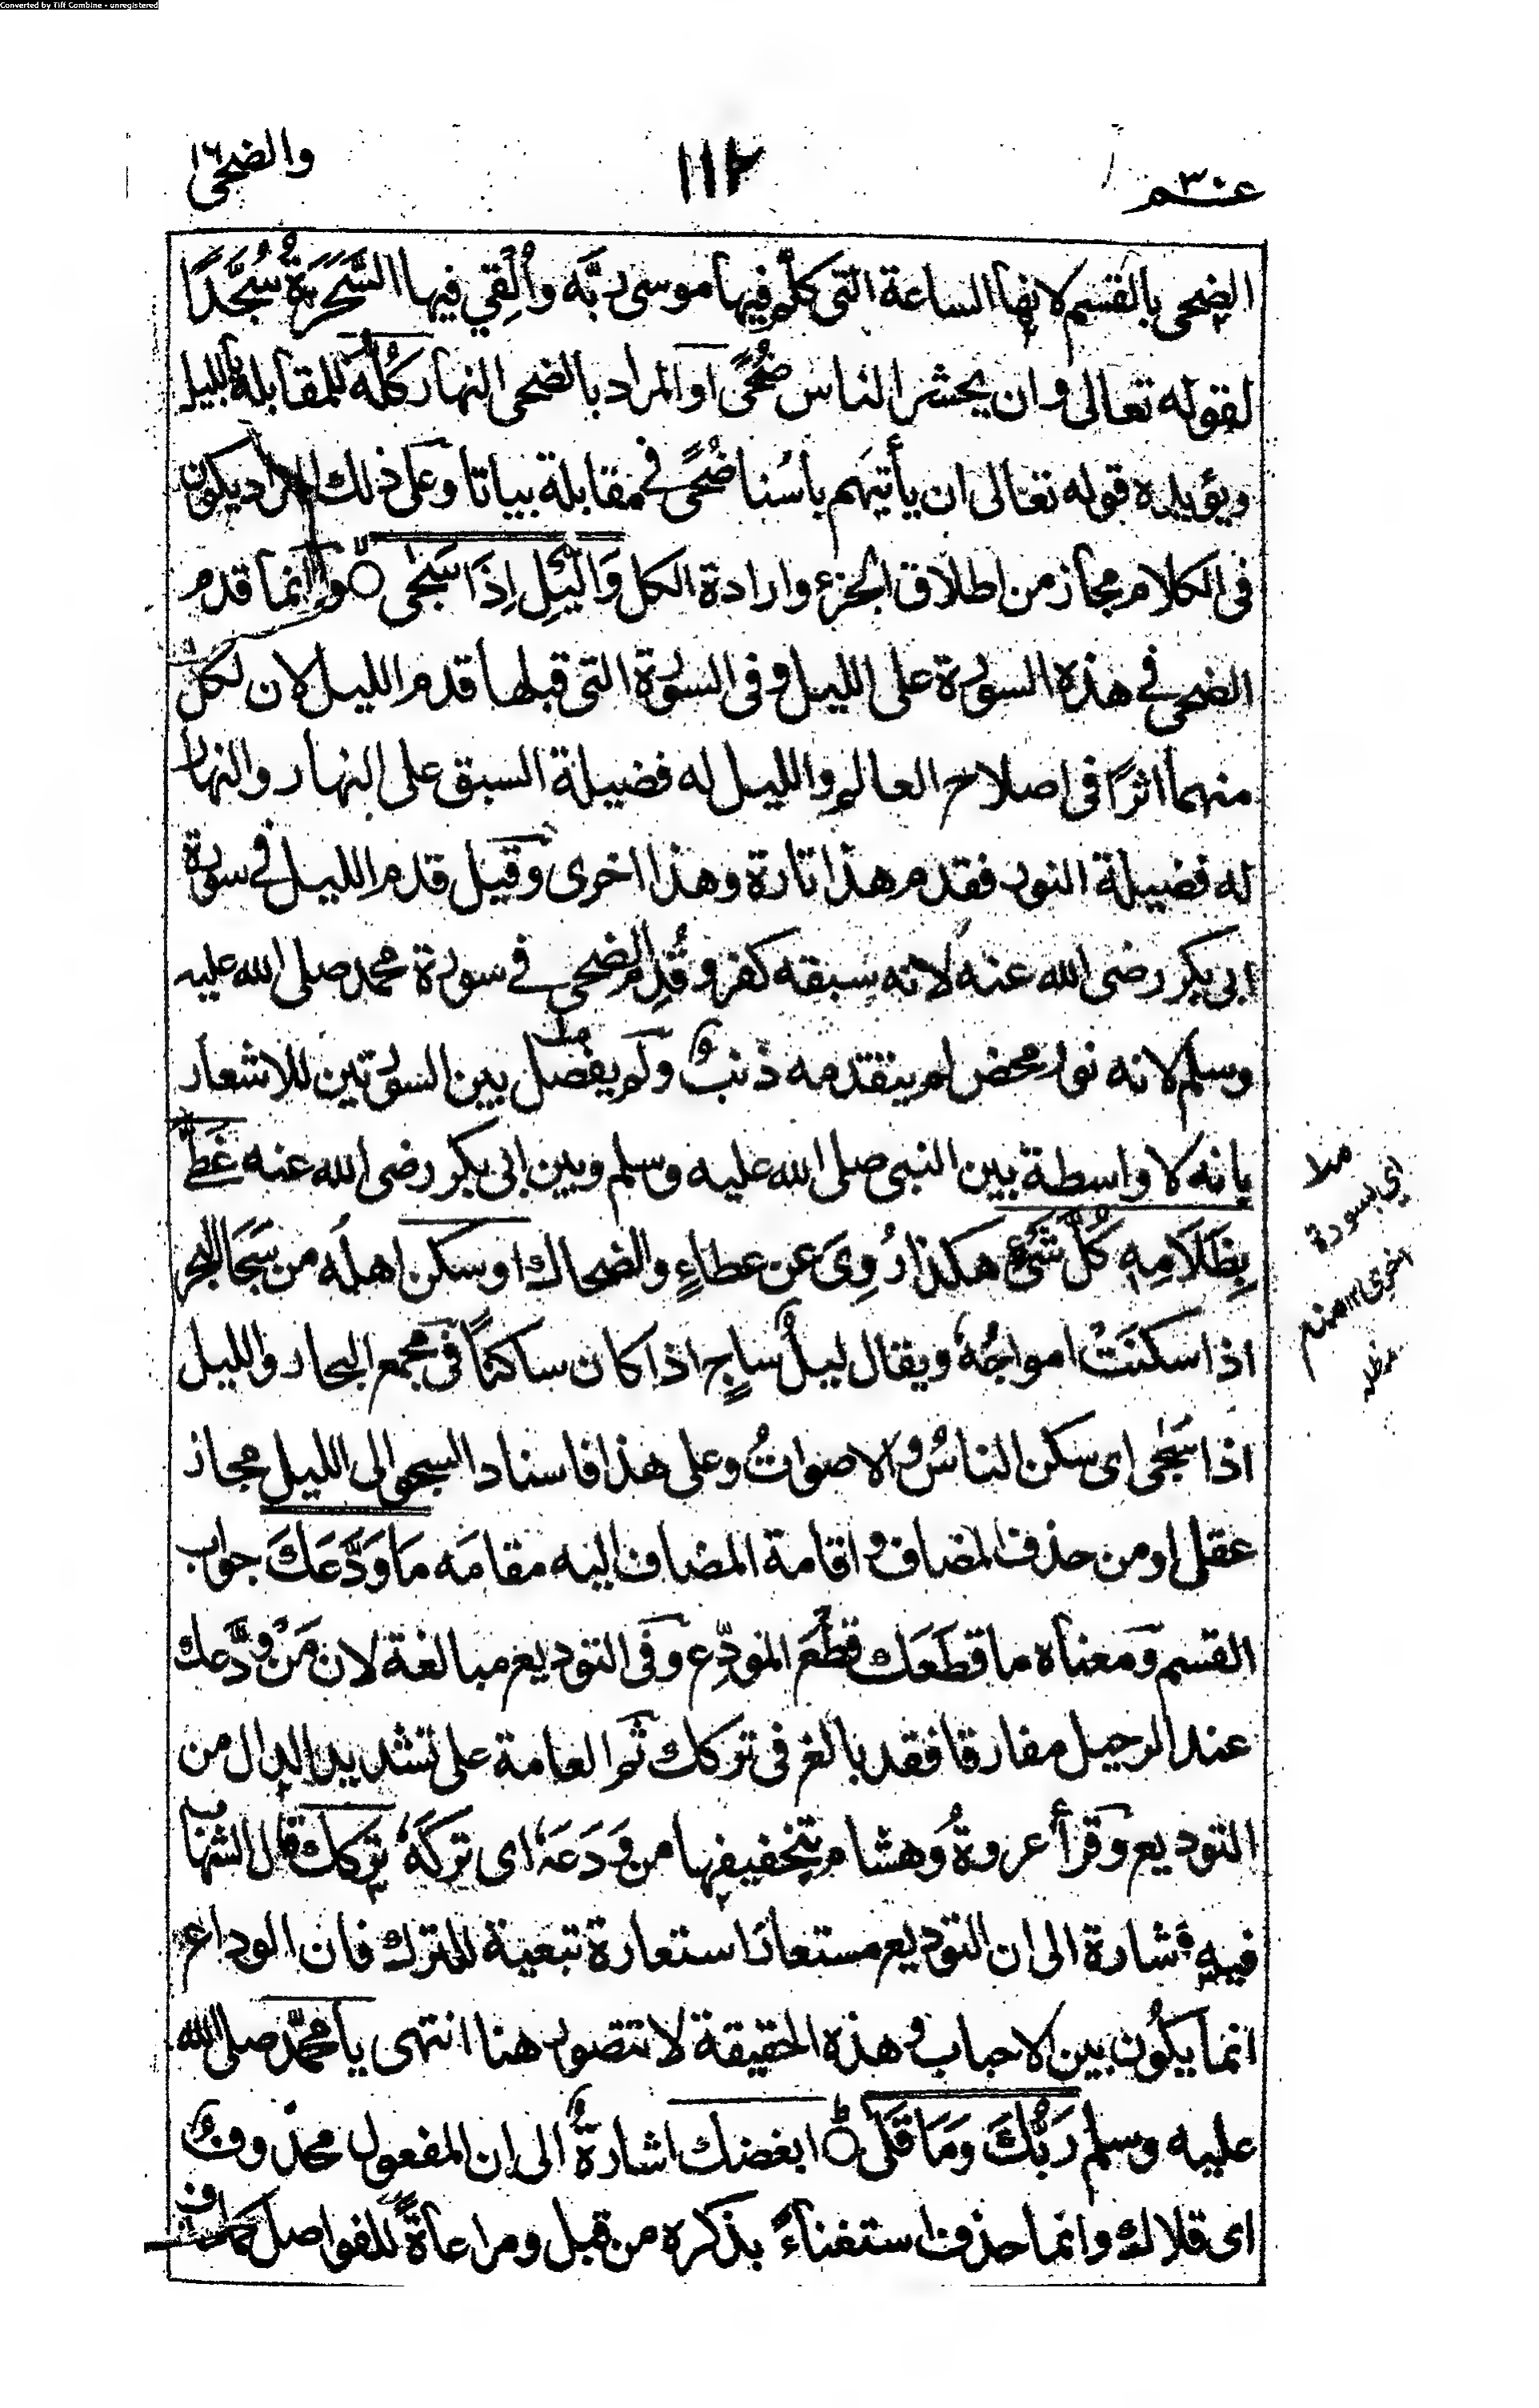 Converted by Tiff Combine - unregistered
عــم۳۰
۱۱۲
والضحى
الضحى بالقسم لانها الساعة التى كلّم فيها موسى ربَّه واُلْقِي فيها السَّحَرَةُ سُجَّدًا
لقوله تعالى وان يحشر الناس ضُحًى او المراد بالضحى النهار كُلُّه للمقابلة بالليل
ويؤيده قوله تعالى ان يأتيهم بأسُنا ضُحًى فى مقابلة بياتا وعلى ذلك المراد يكون
فى الكلام مجاز من اطلاق الجزء وارادة الكل وَالَّيْلِ اِذَا سَجٰى وانما قدم
الضحى فى هذه السورة على الليل وفى السورة التى قبلها قدم الليل لان لكل
منهما اثرًا فى اصلاح العالم والليل له فضيلة السبق على النهار والنهار
له فضيلة النور فقدم هذا تارة وهذا اخرى وقيل قدم الليل فى سورة
ابى بكر رضى الله عنه لانه سبقه كفر وقُدِّم الضحى فى سورة محمد صلى الله عليه
وسلم لانه نور محض لم يتقدمه ذنبٌ ولم يفصل بين السورتين للاشعار
بانه لا واسطة بين النبى صلى الله عليه وسلم وبين ابى بكر رضى الله عنه غَطّٰى
بِظَلَامِهٖ كُلَّ شَىْءٍ هكذا رُوِىَ عن عطاءٍ والضحاك او سكن اهلُه من سَجَا البحر
اذا سكنَتْ امواجُهٗ ويقال ليلٌ ساجٍ اذا كان ساكنًا فى مجمع البحار والليل
اذا سَجٰى اى سكن الناسُ والاصواتُ وعلى هذا فاسناد السجو الى الليل مجاز
عقلى او من حذف المضاف واقامة المضاف اليه مقامَه مَا وَدَّعَكَ جواب
القسم ومعناه ما قطَعَك قطْعَ المودِّع وفى التوديع مبالغة لان مَنْ ودَّعك
عند الرحيل مفارقا فقد بالغ فى تركك ثم العامة على تشديد الدال من
التوديع وقرأ عروةُ وهشام بتخفيفها من وَدَعَهٗ اى تركَهٗ تركك قال الشهاب
فيه اشارة الى ان التوديع مستعار استعارة تبعية للترك فان الوداع
انما يكُون بين الاحباب وهذه الحقيقة لا تتصور هنا انتهى يا محمّد صلى الله
عليه وسلم رَبُّكَ وَمَا قَلٰى ابغضك اشارةٌ الى ان المفعول محذوفٌ
اى قلاك وانما حذف استغناءً بذكره من قبل ومراعاةً للفواصل كما فى
اي بسورة
اخرى ۱۲ منه